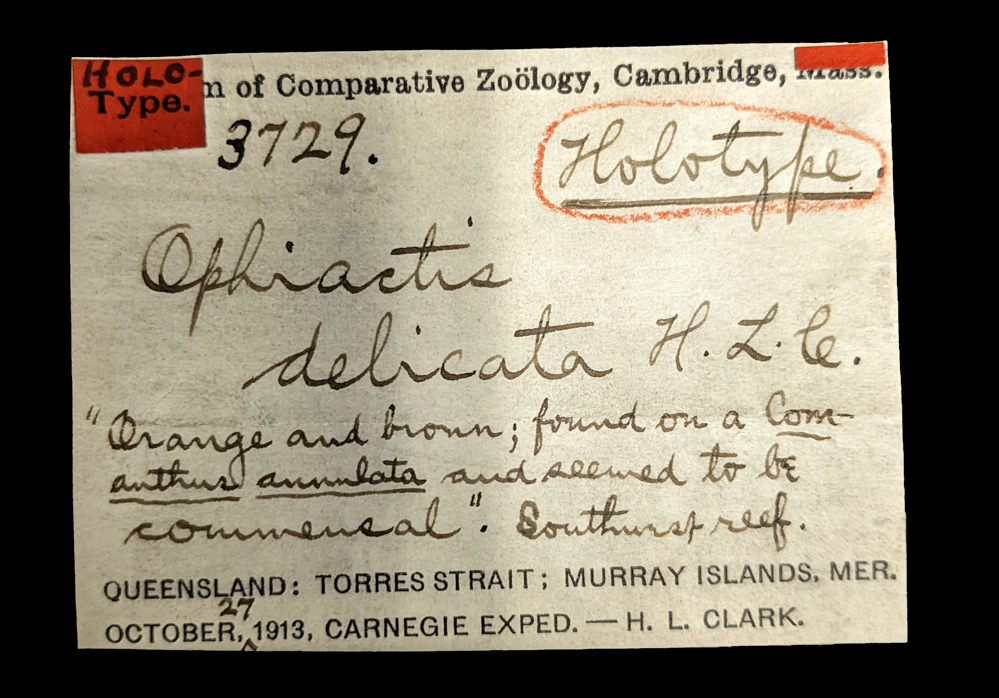 HOLO-
Type.
m of Comparative Zoölogy, Cambridge, Mass.
3729.
Holotype.
Ophiactis
delicata H. L. C.
"Orange and brown; found on a Com-
anthus annulata and seemed to be
commensal". Southwest reef.
QUEENSLAND: TORRES STRAIT; MURRAY ISLANDS, MER.
27
OCTOBER, 1913, CARNEGIE EXPED. — H. L. CLARK.